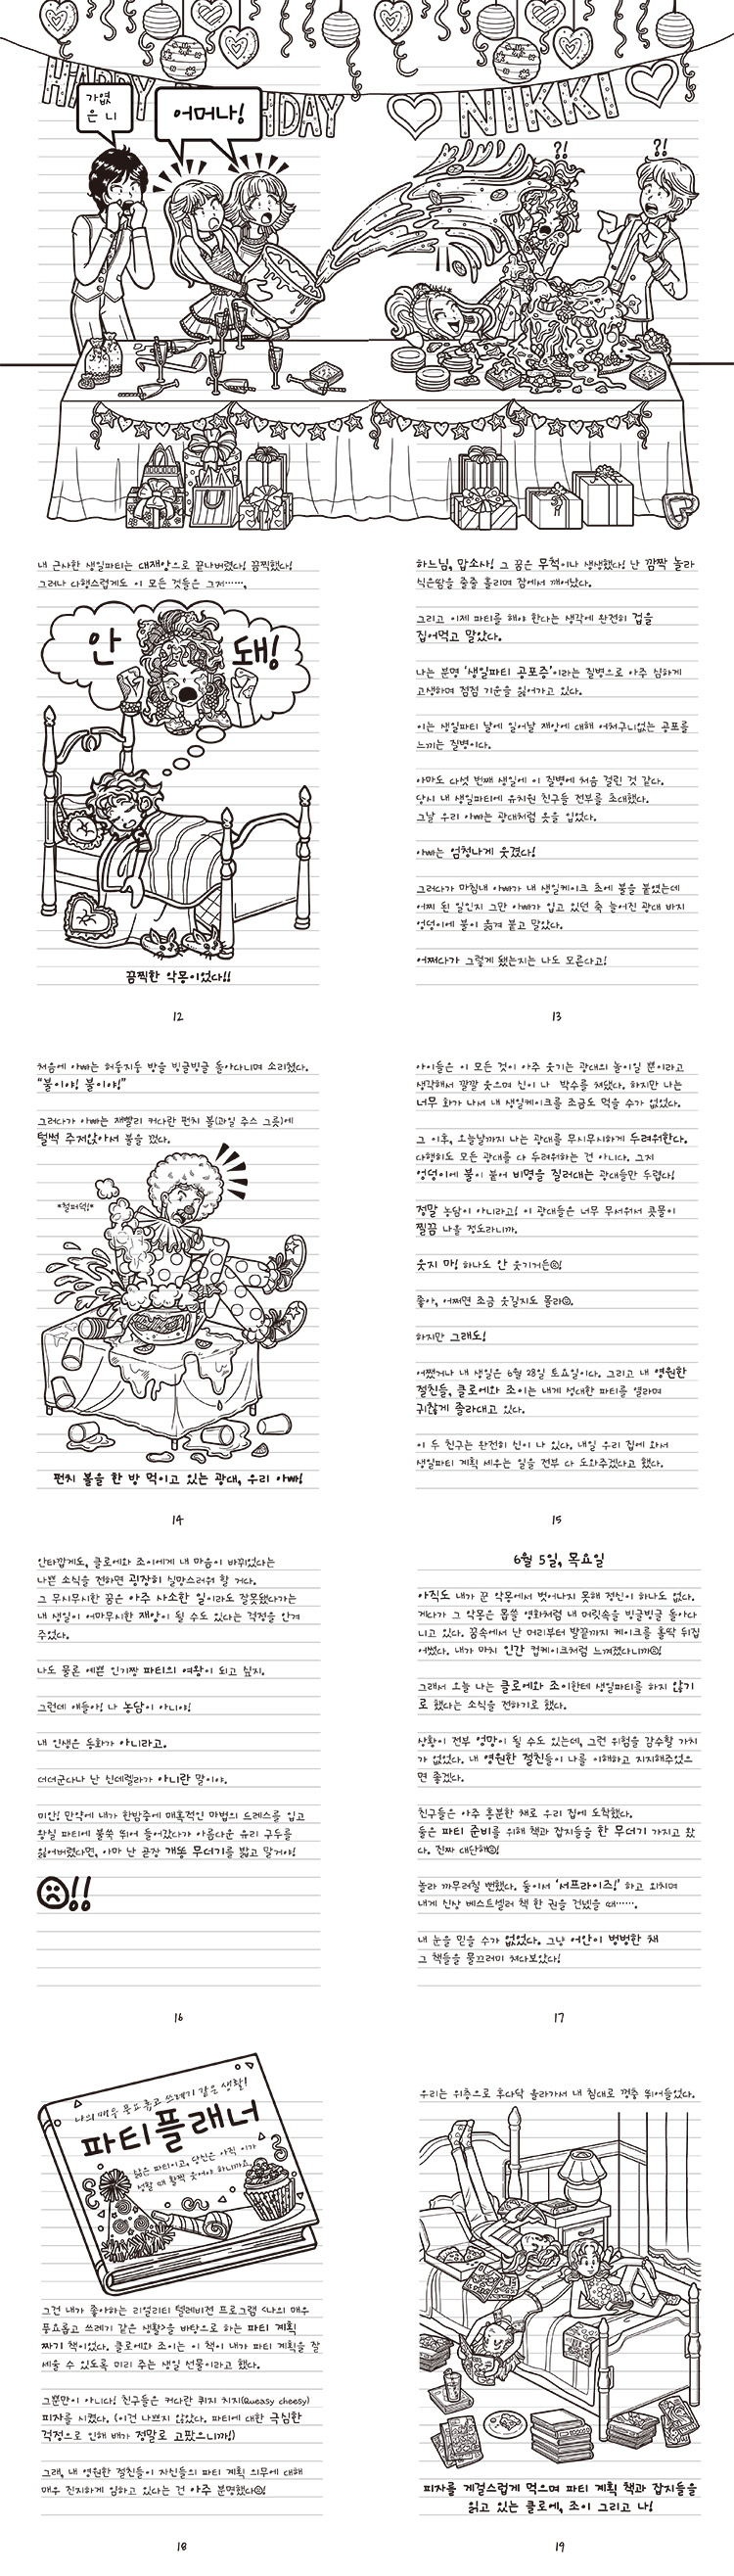 HAPPY BIRTHDAY NIKKI
가엾
은 니
어머나!
?!
?!
내 근사한 생일파티는 대재앙으로 끝나버렸다! 끔찍했다!
그러나 다행스럽게도 이 모든 것들은 그저……,
안 돼!
끔찍한 악몽이었다!!
12
하느님, 맙소사! 그 꿈은 무척이나 생생했다! 난 깜짝 놀라
식은땀을 줄줄 흘리며 잠에서 깨어났다.
그리고 이제 파티를 해야 한다는 생각에 완전히 겁을
집어먹고 말았다.
나는 분명 '생일파티 공포증'이라는 질병으로 아주 심하게
고생하며 점점 기운을 잃어가고 있다.
이는 생일파티 날에 일어날 재앙에 대해 어처구니없는 공포를
느끼는 질병이다.
아마도 다섯 번째 생일에 이 질병에 처음 걸린 것 같다.
당시 내 생일파티에 유치원 친구들 전부를 초대했다.
그날 우리 아빠는 광대처럼 옷을 입었다.
아빠는 엄청나게 웃겼다!
그러다가 마침내 아빠가 내 생일케이크 초에 불을 붙였는데
어찌 된 일인지 그만 아빠가 입고 있던 축 늘어진 광대 바지
엉덩이에 불이 옮겨 붙고 말았다.
어쩌다가 그렇게 됐는지는 나도 모른다고!
13
처음에 아빠는 허둥지둥 방을 빙글빙글 돌아다니며 소리쳤다.
“불이야! 불이야!”
그러다가 아빠는 재빨리 커다란 펀치 볼(과일 주스 그릇)에
털썩 주저앉아서 불을 껐다.
*철퍼덕!*
펀치 볼을 한 방 먹이고 있는 광대, 우리 아빠!
14
아이들은 이 모든 것이 아주 웃기는 광대의 놀이일 뿐이라고
생각해서 깔깔 웃으며 신이 나 박수를 쳐댔다. 하지만 나는
너무 화가 나서 내 생일케이크를 조금도 먹을 수가 없었다.
그 이후, 오늘날까지 나는 광대를 무시무시하게 두려워한다.
다행히도 모든 광대를 다 두려워하는 건 아니다. 그저
엉덩이에 불이 붙어 비명을 질러대는 광대들만 두렵다!
정말 농담이 아니라고! 이 광대들은 너무 무서워서 콧물이
찔끔 나올 정도라니까.
웃지 마! 하나도 안 웃기거든☹!
좋아, 어쩌면 조금 웃길지도 몰라☺.
하지만 그래도!
어쨌거나 내 생일은 6월 28일 토요일이다. 그리고 내 영원한
절친들, 클로에와 조이는 내게 성대한 파티를 열라며
귀찮게 졸라대고 있다.
이 두 친구는 완전히 신이 나 있다. 내일 우리 집에 와서
생일파티 계획 세우는 일을 전부 다 도와주겠다고 했다.
15
안타깝게도, 클로에와 조이에게 내 마음이 바뀌었다는
나쁜 소식을 전하면 굉장히 실망스러워 할 거다.
그 무시무시한 꿈은 아주 사소한 일이라도 잘못됐다가는
내 생일이 어마무시한 재앙이 될 수도 있다는 걱정을 안겨
주었다.
나도 물론 예쁜 인기짱 파티의 여왕이 되고 싶지.
그런데 얘들아! 나 농담이 아니야!
내 인생은 동화가 아니라고.
더더군다나 난 신데렐라가 아니란 말이야.
미안! 만약에 내가 한밤중에 매혹적인 마법의 드레스를 입고
왕실 파티에 불쑥 뛰어 들어갔다가 아름다운 유리 구두를
잃어버렸다면, 아마 난 곧장 개똥 무더기를 밟고 말거야!
☹!!
16
6월 5일, 목요일
아직도 내가 꾼 악몽에서 벗어나지 못해 정신이 하나도 없다.
게다가 그 악몽은 몹쓸 영화처럼 내 머릿속을 빙글빙글 돌아다
니고 있다. 꿈속에서 난 머리부터 발끝까지 케이크를 홀딱 뒤집
어썼다. 내가 마치 인간 컵케이크처럼 느껴졌다니까☹!
그래서 오늘 나는 클로에와 조이한테 생일파티를 하지 않기
로 했다는 소식을 전하기로 했다.
상황이 전부 엉망이 될 수도 있는데, 그런 위험을 감수할 가치
가 없었다. 내 영원한 절친들이 나를 이해하고 지지해주었으
면 좋겠다.
친구들은 아주 흥분한 채로 우리 집에 도착했다.
둘은 파티 준비를 위해 책과 잡지들을 한 무더기 가지고 왔
다. 진짜 대단해☺!
놀라 까무러칠 뻔했다. 둘이서 '서프라이즈!' 하고 외치며
내게 신상 베스트셀러 책 한 권을 건넸을 때……,
내 눈을 믿을 수가 없었다. 그냥 어안이 벙벙한 채
그 책들을 물끄러미 쳐다보았다!
17
나의 매우 풍요롭고 쓰레기 같은 생활!
파티플래너
삶은 파티이고, 당신은 아직 이가
성할 때 활짝 웃어야 하니까요.
그건 내가 좋아하는 리얼리티 텔레비전 프로그램 <나의 매우
풍요롭고 쓰레기 같은 생활>을 바탕으로 하는 파티 계획
짜기 책이었다. 클로에와 조이는 이 책이 내가 파티 계획을 잘
세울 수 있도록 미리 주는 생일 선물이라고 했다.
그뿐만이 아니다! 친구들은 커다란 퀴지 치지(Queasy cheesy)
피자를 시켰다. (이건 나쁘지 않았다. 파티에 대한 극심한
걱정으로 인해 배가 정말로 고팠으니까!)
그래, 내 영원한 절친들이 자신들의 파티 계획 의무에 대해
매우 진지하게 임하고 있다는 건 아주 분명했다☹!
18
우리는 위층으로 후다닥 올라가서 내 침대로 껑충 뛰어들었다.
피자를 게걸스럽게 먹으며 파티 계획 책과 잡지들을
읽고 있는 클로에, 조이 그리고 나!
19